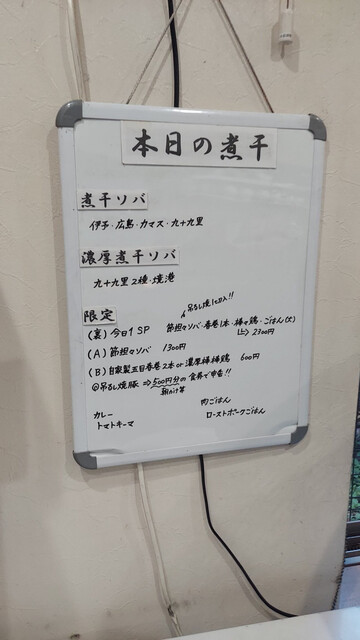 本日の煮干
煮干ソバ
伊予・広島・カマス・九十九里
濃厚煮干ソバ
九十九里2種・焼港
限定
吊るし焼1コ入!!
(裏)今日イSP 節担々ソバ・春巻1本・ ・ごはん(大)
2300円
(A)節担々ソバ 1300円
(B)自家製五目春巻2本or濃厚 600円
@吊るし焼豚⇒500円分の食券で申告!!
カレー 肉ごはん
トマトキーマ ローストポークごはん